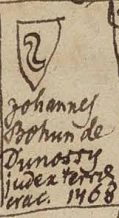 Johannes
Bohun de
Dunossy
judex terrae
crac. 1468